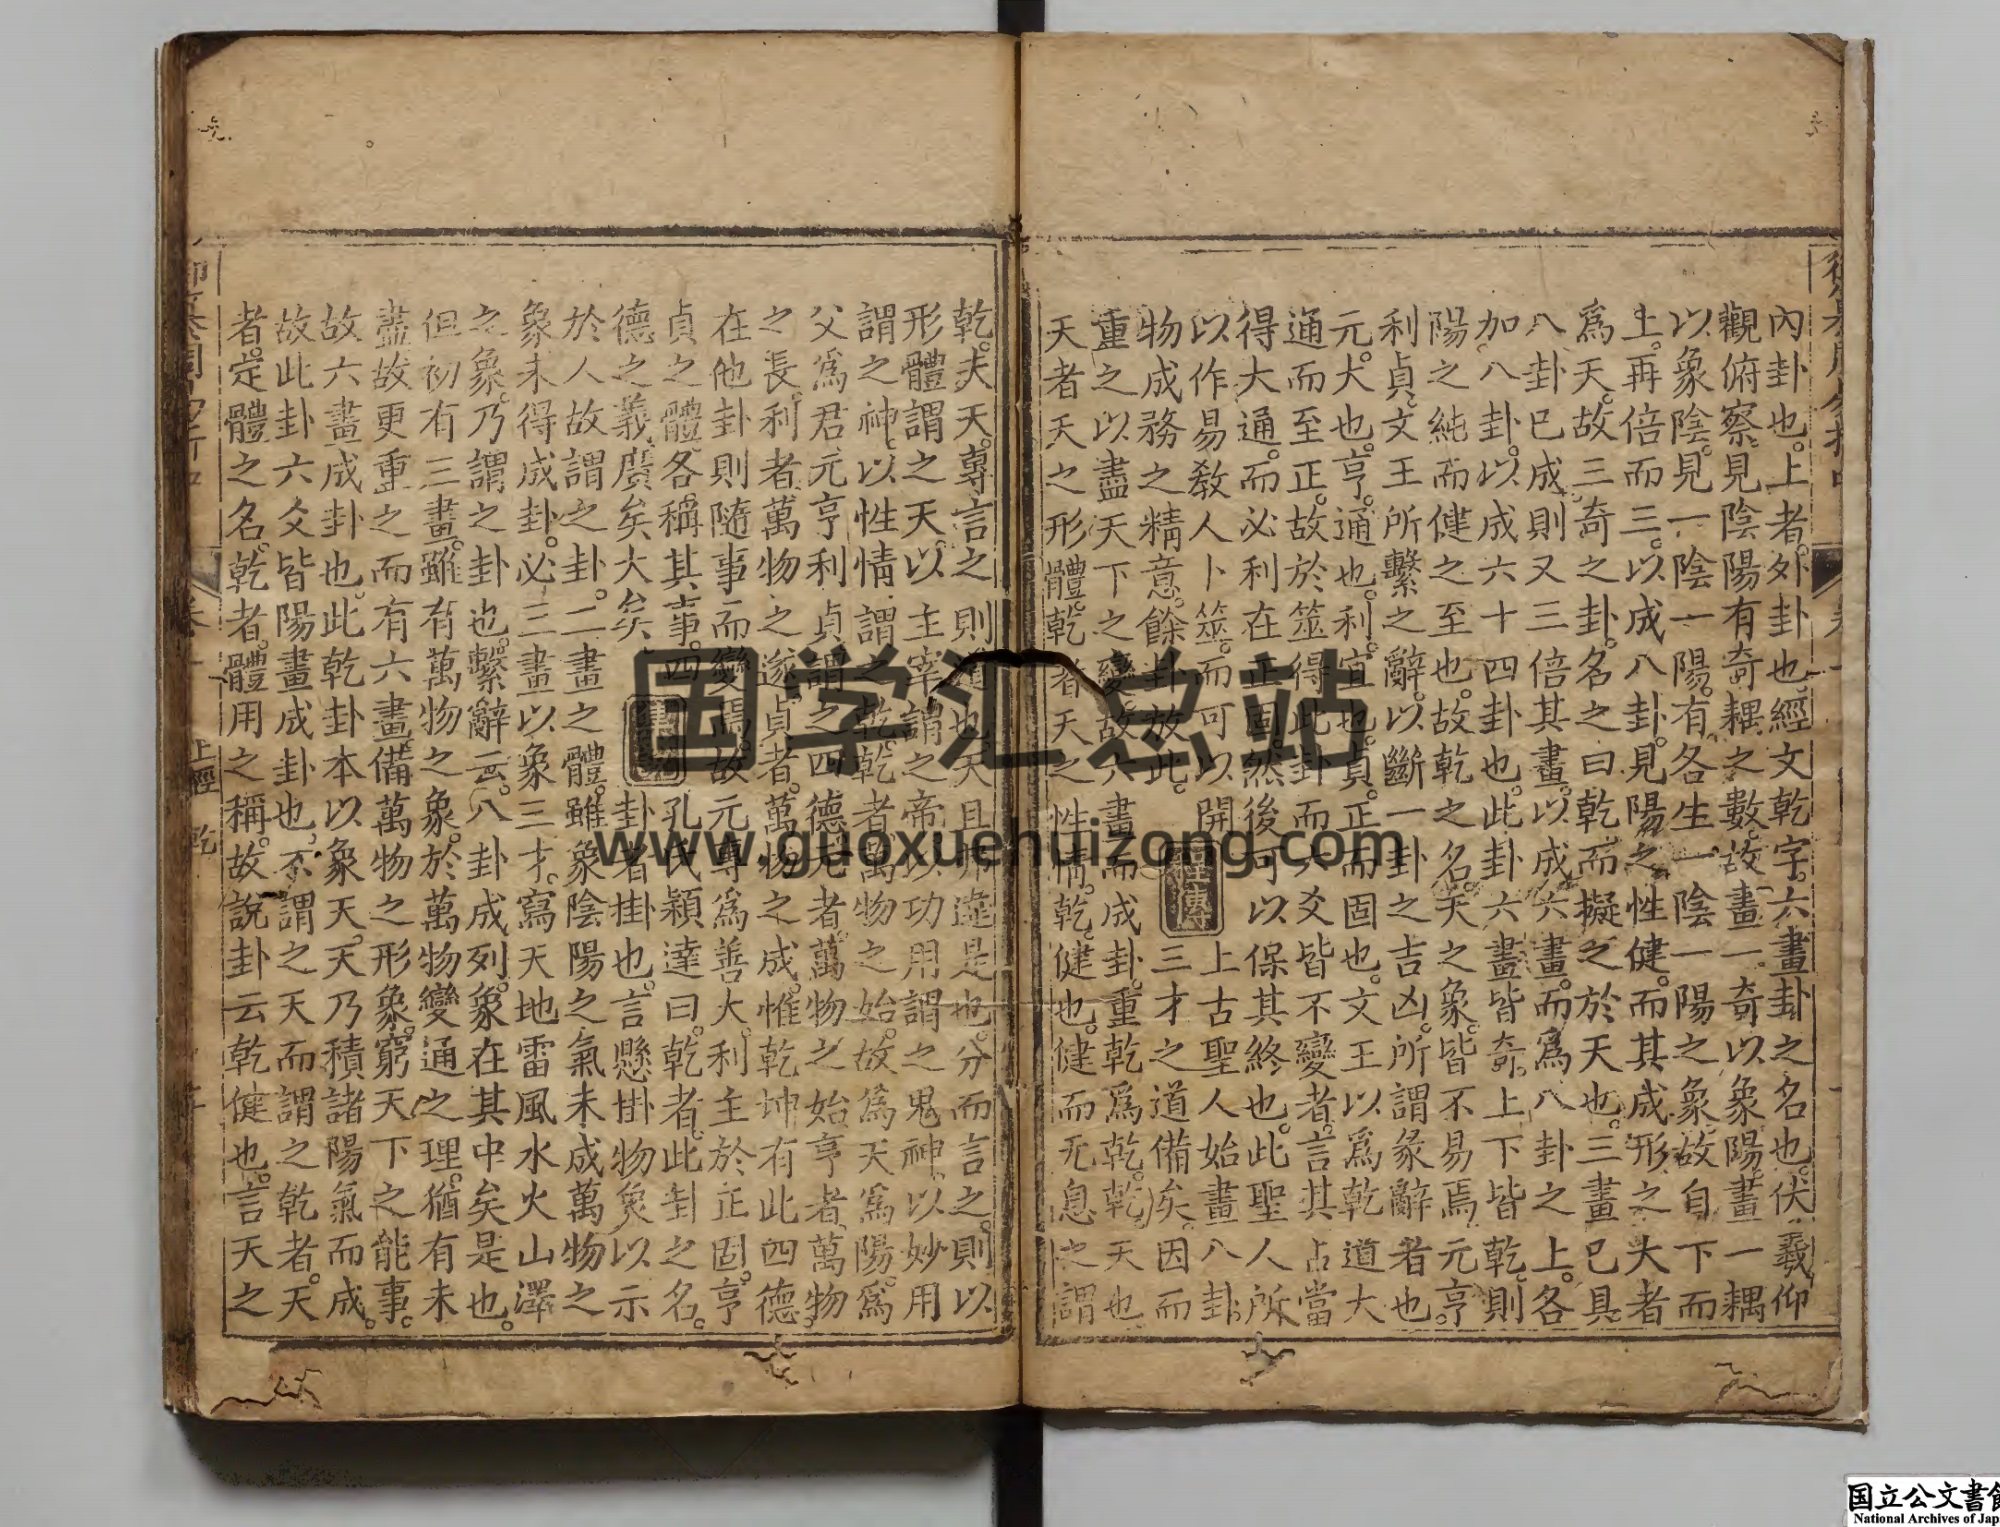 內卦也。上者。外卦也經文乾字。六畫卦之名也。伏羲仰
觀俯察。見陰陽有奇耦之數。故畫一奇以象陽。畫一耦
以象陰。見一陰一陽。有各生一陰一陽之象。故自下而
上。再倍而三。以成八卦。見陽之性健。而其成形之大者
爲天。故三奇之卦。名之曰乾。而擬之於天也。三畫已具。
八卦已成。則又三倍其畫。以成六畫。而爲八卦之上。各
加八卦。以成六十四卦也。此卦六畫皆奇。上下皆乾。則
陽之純而健之至也。故乾之名。天之象。皆不易焉。元亨。
利貞。文王所繫之辭。以斷一卦之吉凶。所謂彖辭者也。
元。大也。亨。通也。利。宜也。貞。正而固也。文王以爲乾道大
通而至正。故於筮得此卦而六爻皆不變者。言其占當
得大通。而必利在正固。然後可以保其終也。此聖人所
以作易教人卜筮。而可以開
物成務之精意。餘卦放此。
程傳
上古聖人始畫八卦
三才之道備矣。因而
重之以盡天下之變。故六畫而成卦。重乾爲乾。乾天也
天者天之形體。乾者天之性情。乾。健也。健而无息之謂
乾。夫天。專言之則道也。天且弗違是也。分而言之。則以
形體謂之天。以主宰謂之帝。以功用謂之鬼神。以妙用
謂之神。以性情謂之乾。乾者。萬物之始。故爲天爲陽。爲
父爲君元亨利貞謂之四德。元者。萬物之始亨者萬物
之長。利者萬物之遂。貞者。萬物之成。惟乾坤有此四德。
在他卦則隨事而變焉。故元專爲善大。利主於正固。亨
貞之體。各稱其事。四
德之義。廣矣大矣
集說
孔氏穎達曰。乾者。此卦之名。
卦者掛也。言懸掛物象以示
於人故謂之卦。二畫之體。雖象陰陽之氣未成萬物之
象未得成卦。必三畫以象三才。寫天地雷風水火山澤
之象。乃謂之卦也。繫辭云。八卦成列。象在其中矣是也。
但初有三畫。雖有萬物之象。於萬物變通之理。猶有未
盡故更重之而有六畫備萬物之形象。窮天下之能事。
故六畫成卦也。此乾卦本以象天。天乃積諸陽氣而成。
故此卦六爻皆陽畫成卦也。不謂之天而謂之乾者。天
者。定體之名。乾者。體用之稱。故說卦云乾健也。言天之
御纂周易折中
卷一
上經 乾
国学汇总站
www.guoxuehuizong.com
国立公文書館
National Archives of Jap